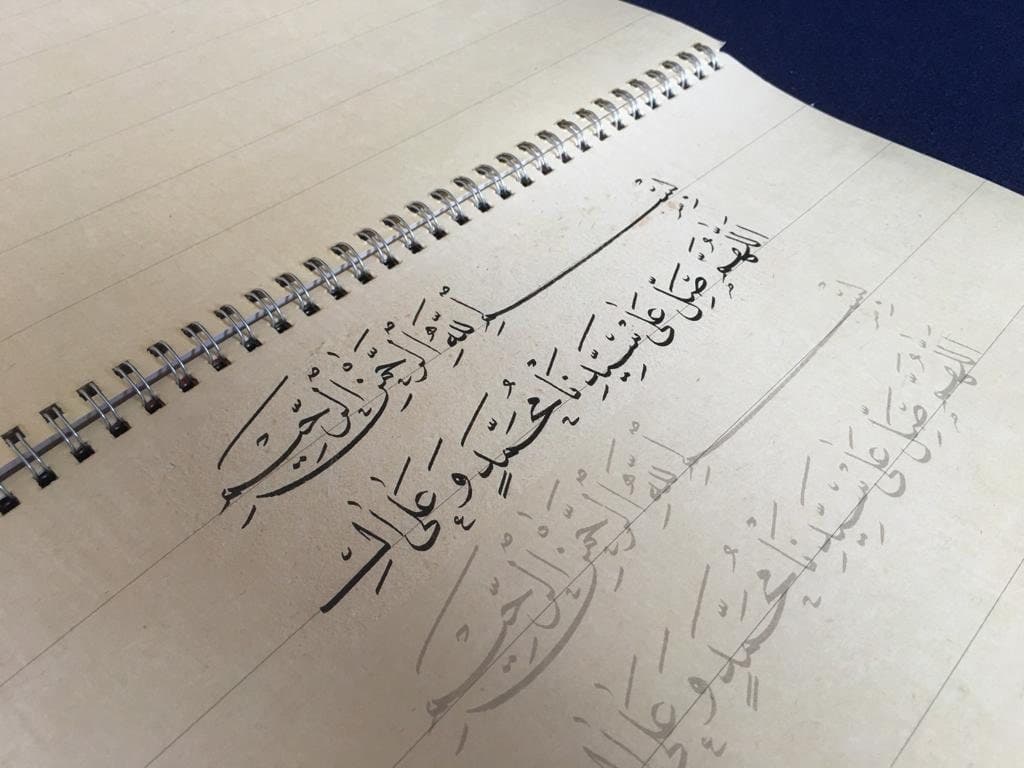 بِسْمِ اللهِ الرَّحْمٰنِ الرَّحِيمِ
اَللّٰهُمَّ صَلِّ عَلَى سَيِّدِنَا مُحَمَّدٍ وَعَلَى اٰلِ
بِسْمِ اللهِ الرَّحْمٰنِ الرَّحِيمِ
اَللّٰهُمَّ صَلِّ عَلَى سَيِّدِنَا مُحَمَّدٍ وَعَلَى